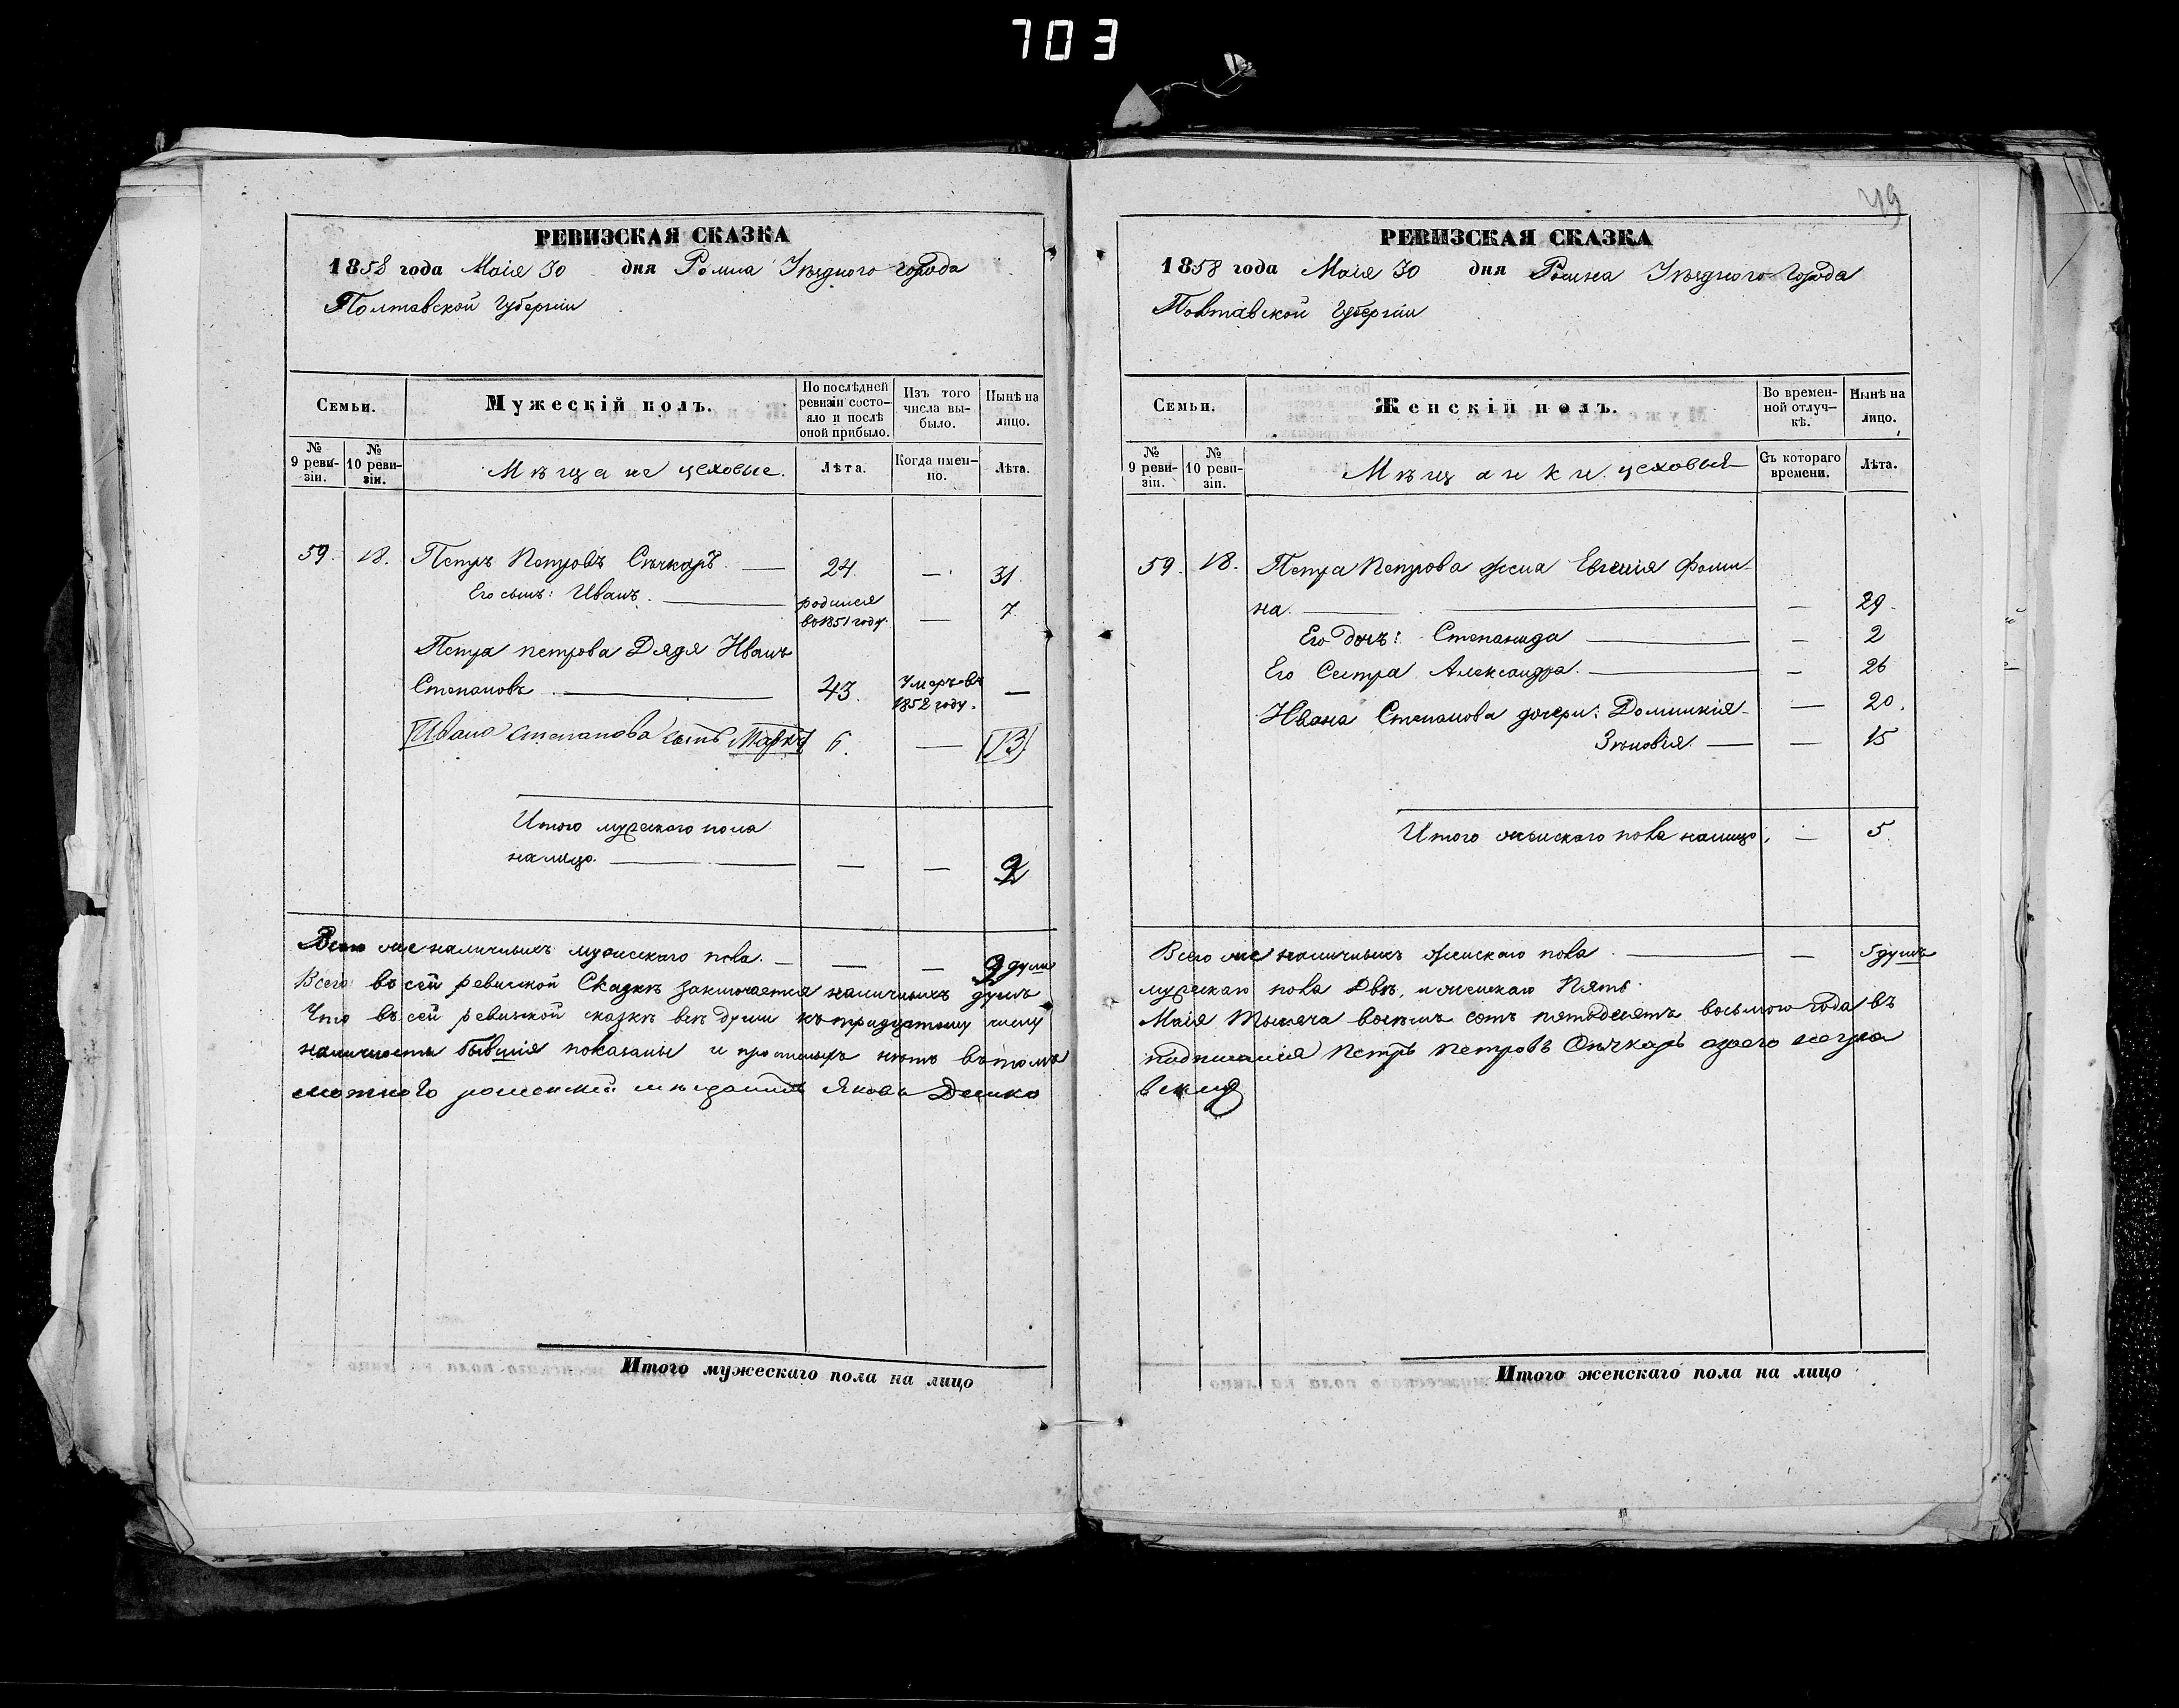 703
РЕВИЗСКАЯ СКАЗКА
1858 года Маія 30 дня Ромна Уѣзднаго города
Полтавской Губерніи
Семьи.
Мужескій полъ.
По послѣдней ревизіи состояло и послѣ оной прибыло.
Изъ того числа выбыло.
Нынѣ на лицо.
№ 9 ревизіи.
№ 10 ревизіи.
Мѣщане цеховые.
Лѣта.
Когда именно.
Лѣта.
59. 18. Петръ Петровъ Сѣчкарь 24. — 31.
Его сынъ: Иванъ. родился во 1851 году. — 7
Петра петрова Дядя Иванъ
Степановъ. 43. Умеръ въ 1852 году. —
Ивана Степанова сынъ Марко 6. — 13
Итого мужескаго пола
налицо. — — 2
Всего же наличныхъ мужескаго пола. — — — 2 души
Всего во сей ревизской Сказкѣ заключается наличныхъ душъ
Что въ сей ревизской сказкѣ всѣ души къ тридцатому числу
наличности бывшія показаны и прописныхъ нѣтъ въ томъ
роменскій мѣщанинъ Яковъ
49
РЕВИЗСКАЯ СКАЗКА
1858 года Маія 30 дня Ромна Уѣзднаго Города
Полтавской Губерніи
Семьи.
Женскій полъ.
Во временной отлучкѣ.
Нынѣ на лицо.
№ 9 ревизіи.
№ 10 ревизіи.
Мѣщанки цеховыя
Съ котораго времени.
Лѣта.
59. 18. Петра Петрова жена Евгенія Фоми-
на. — 29.
Его дочь: Степанида — 2
Его Сестра Александра. — 26
Ивана Степанова дочери: Домникія — 20.
Зѣновія. — 15
Итого женскаго пола налицо. — 5.
Всего же наличныхъ женскаго пола. — 5 душъ
мужскаго пола Двѣ, и женскаго Пять.
Маія Тысяча восемь сотъ пятьдесятъ восьмого года въ
подписался Петръ Петровъ Сѣчкарь
Итого мужескаго пола на лицо
Итого женскаго пола на лицо